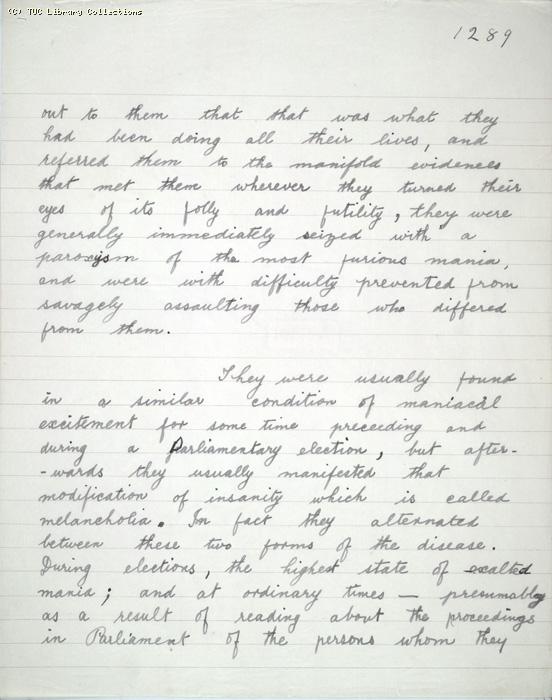 (C) TUC Library Collections
1289
out to them that that was what they
had been doing all their lives, and
referred them to the manifold evidences
that met them wherever they turned their
eyes of its folly and futility, they were
generally immediately seized with a
paroxysm of the most furious mania,
and were with difficulty prevented from
savagely assaulting those who differed
from them.
They were usually found
in a similar condition of maniacal
excitement for some time preceeding and
during a Parliamentary election, but after-
-wards they usually manifested that
modification of insanity which is called
melancholia. In fact they alternated
between these two forms of the disease.
During elections, the highest state of exalted
mania; and at ordinary times — presumably
as a result of reading about the proceedings
in Parliament of the persons whom they